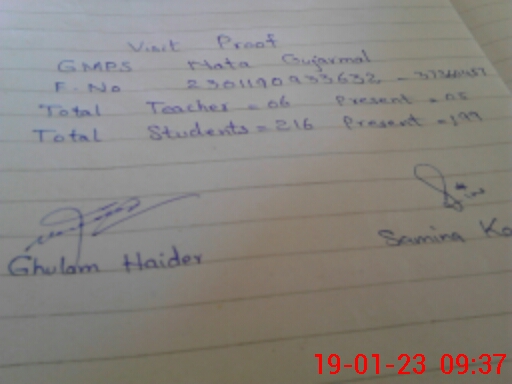 Visit Proof
GMPS Nata Gujarmal
F. No 2301190933632 -
Total Teacher = 06 Present = 05
Total Students = 216 Present = 199
Ghulam Haider
Samina Ko
19-01-23 09:37